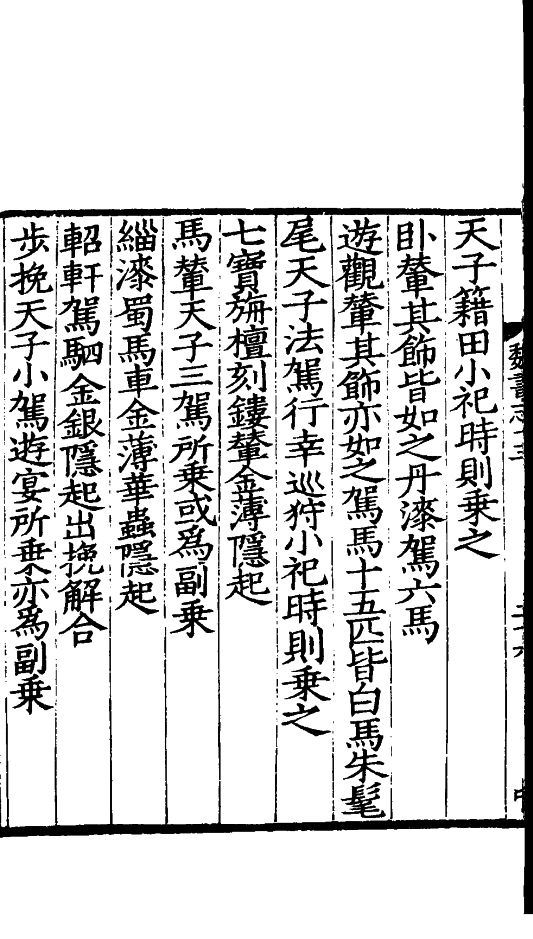 魏書志十三
天子籍田小祀時則乗之
卧輦其飾皆如之丹漆駕六馬
遊觀輦其飾亦如之駕馬十五匹皆白馬朱髦
尾天子法駕行幸巡狩小祀時則乗之
七寶旃檀刻鏤輦金薄隱起
馬輦天子三駕所乗或爲副乗
緇漆蜀馬車金薄華蟲隱起
軺軒駕駟金銀隱起出挽解合
步挽天子小駕遊宴所乗亦爲副乗